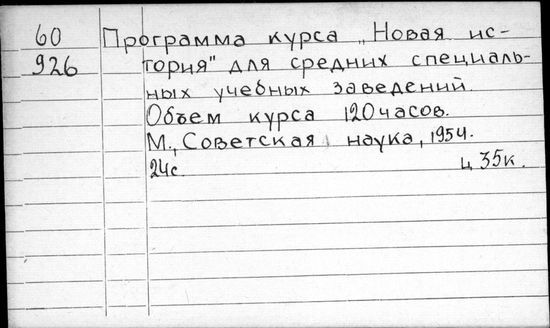 60 Программа курса „Новая ис-
926 тория" для средних специаль-
ных учебных заведений.
Объем курса 120 часов.
М., Советская наука, 1954.
24с. ц 35к.